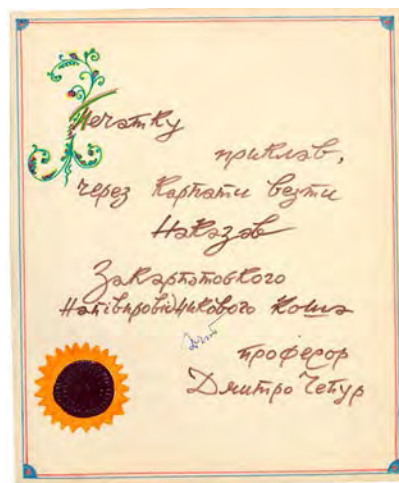 Печатку
приклав,
через Карпати везти
Наказав
Закарпатського
Напівпровідникового Коша
професор
Дмитро Чепур